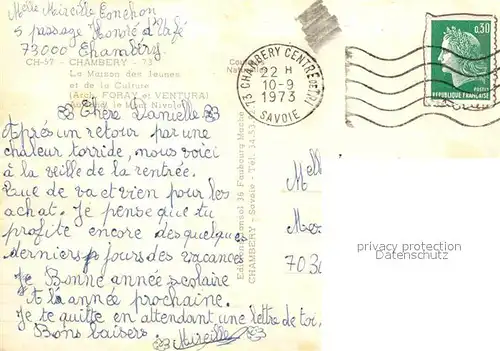 Melle Mireille Conchon
5 passage Honoré d'Urfé
73000 Chambéry
CH-57 - CHAMBERY - 73
La Maison des Jeunes
et de la Culture
(Arch. FORAY et VENTURA)
le Mont Nivolet
Chère Danielle
Après un retour par une
chaleur torride, nous voici
à la veille de la rentrée.
Que de va et vien pour les
achat. Je pense que tu
profite encore des quelques
derniers jours des vacances
Je Bonne année scolaire
et la année prochaine.
Je te quitte en attendant une lettre de toi,
Bons baisers. Mireille
73 CHAMBERY CENTRE DE TRI
22 H
10-9
1973
SAVOIE
0,30
POSTES
REPUBLIQUE FRANÇAISE
35 Faubourg Maché
CHAMBERY - Savoie - Tél. 34.53
Mell
703
privacy protection
Datenschutz